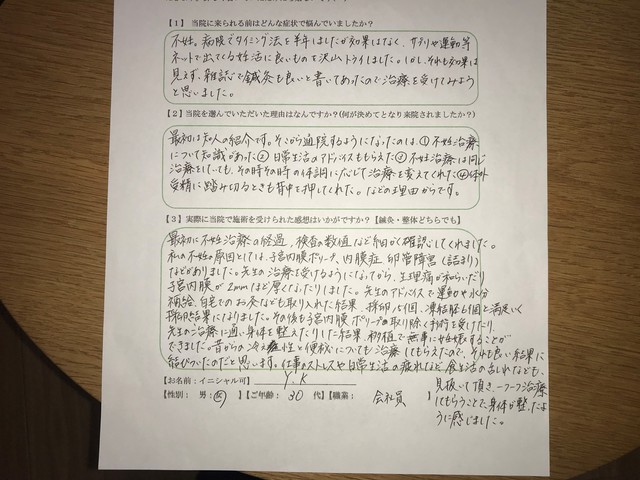 【1】当院に来られる前はどんな症状で悩んでいましたか？
不妊。病院でタイミング法を半年しましたが効果はなく、サプリや運動等
ネットで出てくる妊活に良いものを沢山トライしました。しかし、それも効果は
見えず、雑誌で鍼灸も良いと書いてあったので治療を受けてみよう
と思いました。
【2】当院を選んでいただいた理由はなんですか？(何が決めてとなり来院されましたか？)
最初は知人の紹介です。そこから通院するようになったのは、①不妊治療
について知識があった②日常生活のアドバイスももらえた③不妊治療は同じ
治療をしていても、その時その時の体調に応じて治療を変えてくれた④体外
受精に踏み切るときも背中を押してくれた。などの理由からです。
【3】実際に当院で施術を受けられた感想はいかがですか？【鍼灸・整体どちらでも】
最初に不妊治療の経過、検査の数値など細かく確認してくれました。
私の不妊の原因としては、子宮内膜ポリープ、内膜症、卵管障害（詰まり）
などがありました。先生の治療を受けるようになってから、生理痛が和らいだり
子宮内膜が2mmほど厚くなったりしました。先生のアドバイスで運動や水分
補給、自宅でのお灸なども取り入れた結果、採卵15個、凍結胚6個と満足いく
採卵結果になりました。その後も子宮内膜ポリープの取り除く手術を受けたり、
先生の治療に通い身体を整えたりした結果、初植で無事に妊娠することが
できました。昔からの冷え性と便秘についても治療してもらえたので、それも良い結果に
結びついたのだと思います。仕事のストレスや日常生活の疲れなど、食生活の乱れなども、
見抜いて頂き、一つ一つ治療
してもらうことで、身体が整ったよ
うに感じました。
【お名前：イニシャル可】 Y.K
【性別： 男：女】【ご年齢： 30 代】【職業： 会社員 】